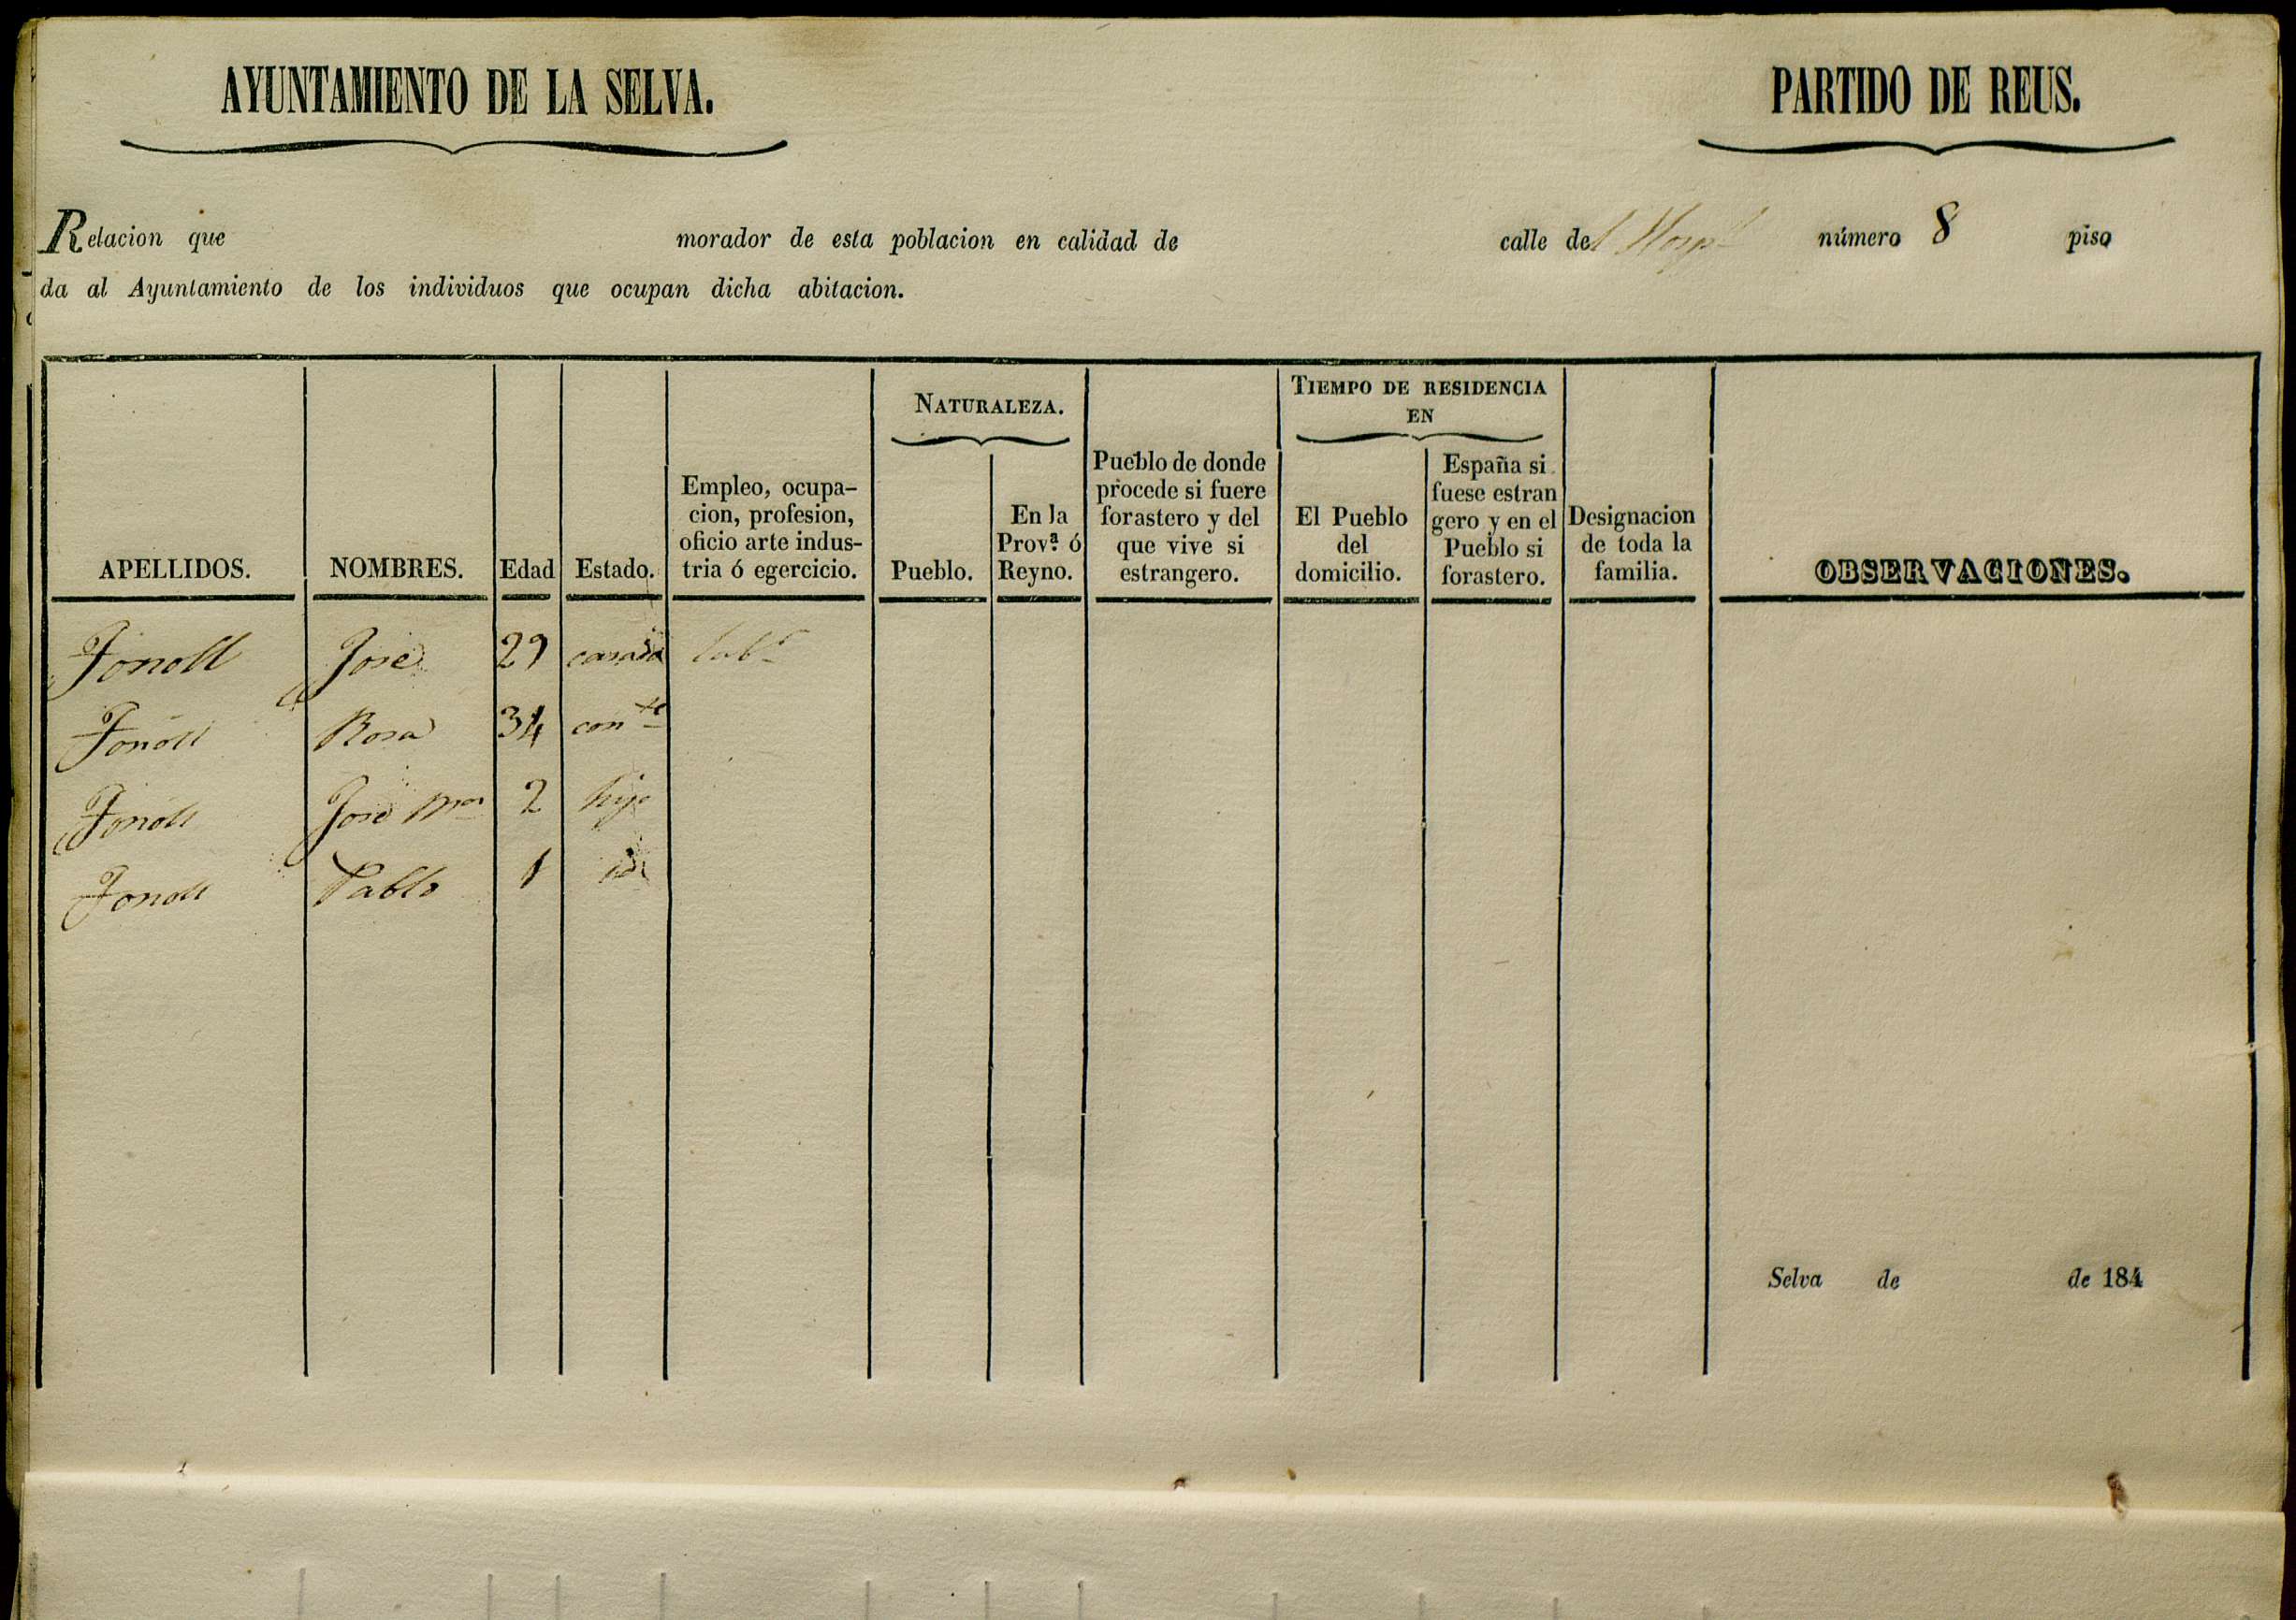 AYUNTAMIENTO DE LA SELVA.
PARTIDO DE REUS.
Relacion que morador de esta poblacion en calidad de calle del Hospl número 8 piso
da al Ayuntamiento de los individuos que ocupan dicha abitacion.
APELLIDOS.
NOMBRES.
Edad
Estado.
Empleo, ocupa-
cion, profesion,
oficio arte indus-
tria ó egercicio.
NATURALEZA.
Pueblo.
En la
Prov.ª ó
Reyno.
Pueblo de donde
procede si fuere
forastero y del
que vive si
estrangero.
TIEMPO DE RESIDENCIA
EN
El Pueblo
del
domicilio.
España si
fuese estran
gero y en el
Pueblo si
forastero.
Designacion
de toda la
familia.
OBSERVACIONES.
Fonoll José 29 casado labr
Fonoll Rosa 34 conte
Fonoll José Ma 2 hijo
Fonoll Pablo 1 id
Selva de de 184